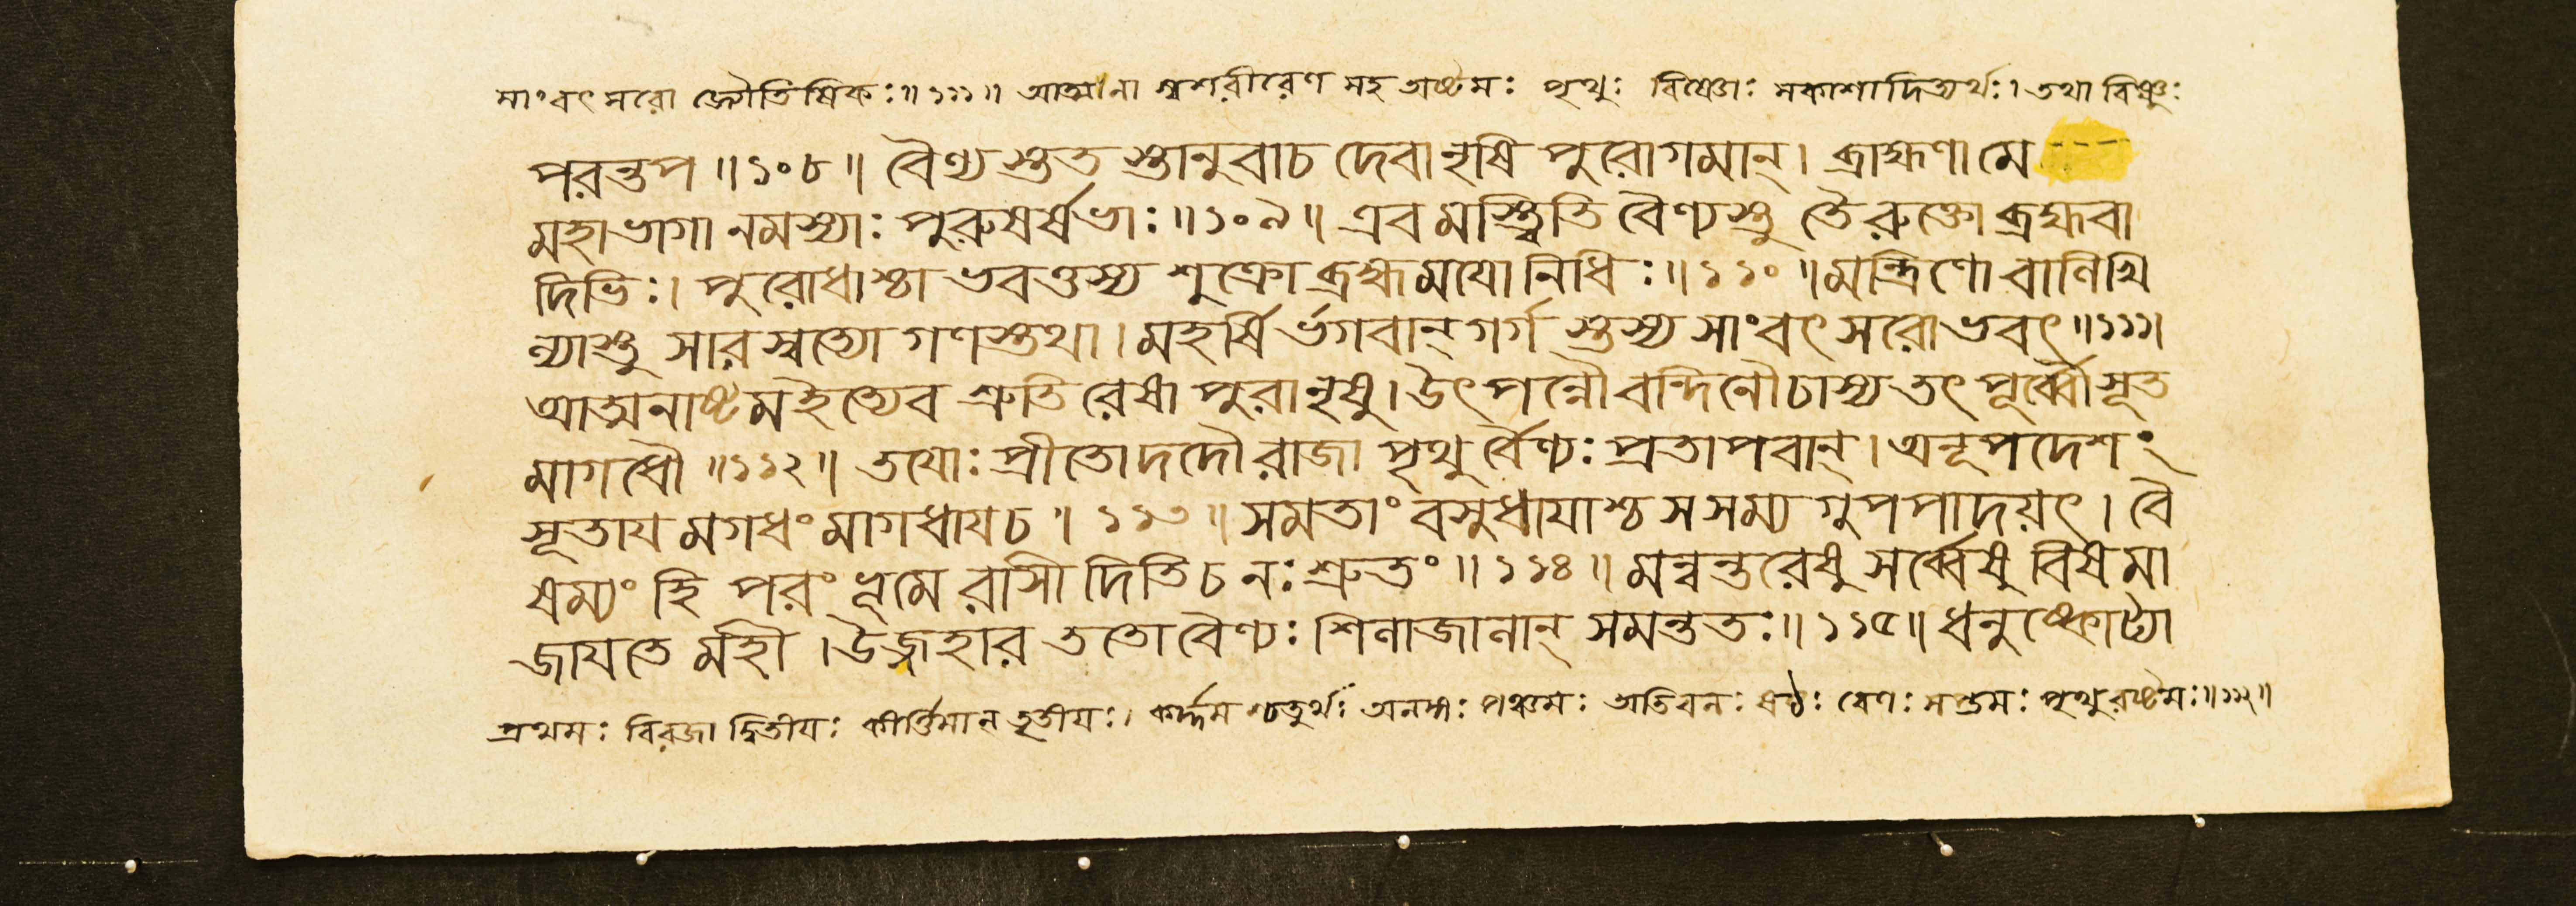 সাংবৎসরো জ্যৌতিষিকঃ॥১১১॥ আত্মনা স্বশরীরেণ সহ অষ্টমঃ পৃথুঃ বিষ্ণোঃ সকাশাদিত্যর্থঃ। তথা বিষ্ণুঃ
পরন্তপ॥১০৮॥ বৈণ্যস্তুত স্তানুবাচ দেবানৃষি পুরোগমান্। ব্রাহ্মণা মে
মহাভাগা নমস্যাঃ পুরুষর্ষভাঃ॥১০৯॥ এবমস্ত্বিতি বৈণ্যস্তু তৈরুক্তো ব্রহ্মবা
দিভিঃ। পুরোধাশ্চা ভবত্তস্য শুক্রো ব্রহ্মময়োনিধিঃ॥১১০॥ মন্ত্রিণো বালিখি
ল্যাস্তু সারস্বত্যো গণস্তথা। মহর্ষি র্ভগবান্ গর্গ স্তস্য সাংবৎসরোভবৎ॥১১১।
আত্মনাষ্টমইত্যেব শ্রুতিরেষা পুরানৃষু। উৎপন্নৌ বন্দিনৌচাস্য তৎপূর্ব্বৌ সূত
মাগধৌ॥১১২॥ তয়োঃ প্রীতোদদৌ রাজা পৃথু র্বৈণ্যঃ প্রতাপবান্। অনূপদেশং
সূতায় মগধং মাগধায়চ।১১৩॥ সমতাং বসুধায়াশ্চ স সম্যগুপপাদয়ৎ। বৈ
ষম্যং হি পরং ভূমেরাসী দিতিচ নঃ শ্রুতং॥১১৪॥ মন্বন্তরেষু সর্ব্বেষু বিষমা
জায়তে মহী। উজ্জহার ততোবৈণ্যঃ শিলাজালান্ সমন্ততঃ॥১১৫॥ ধনুষ্কোট্যা
প্রথমঃ বিরজা দ্বিতীয়ঃ কীর্ত্তিমান তৃতীয়ঃ। কর্দ্দমশ্চতুর্থঃ অনঙ্গঃ পঞ্চমঃ অতিবলঃ ষষ্ঠঃ বেণঃ সপ্তমঃ পৃথুরষ্টমঃ॥১১২॥